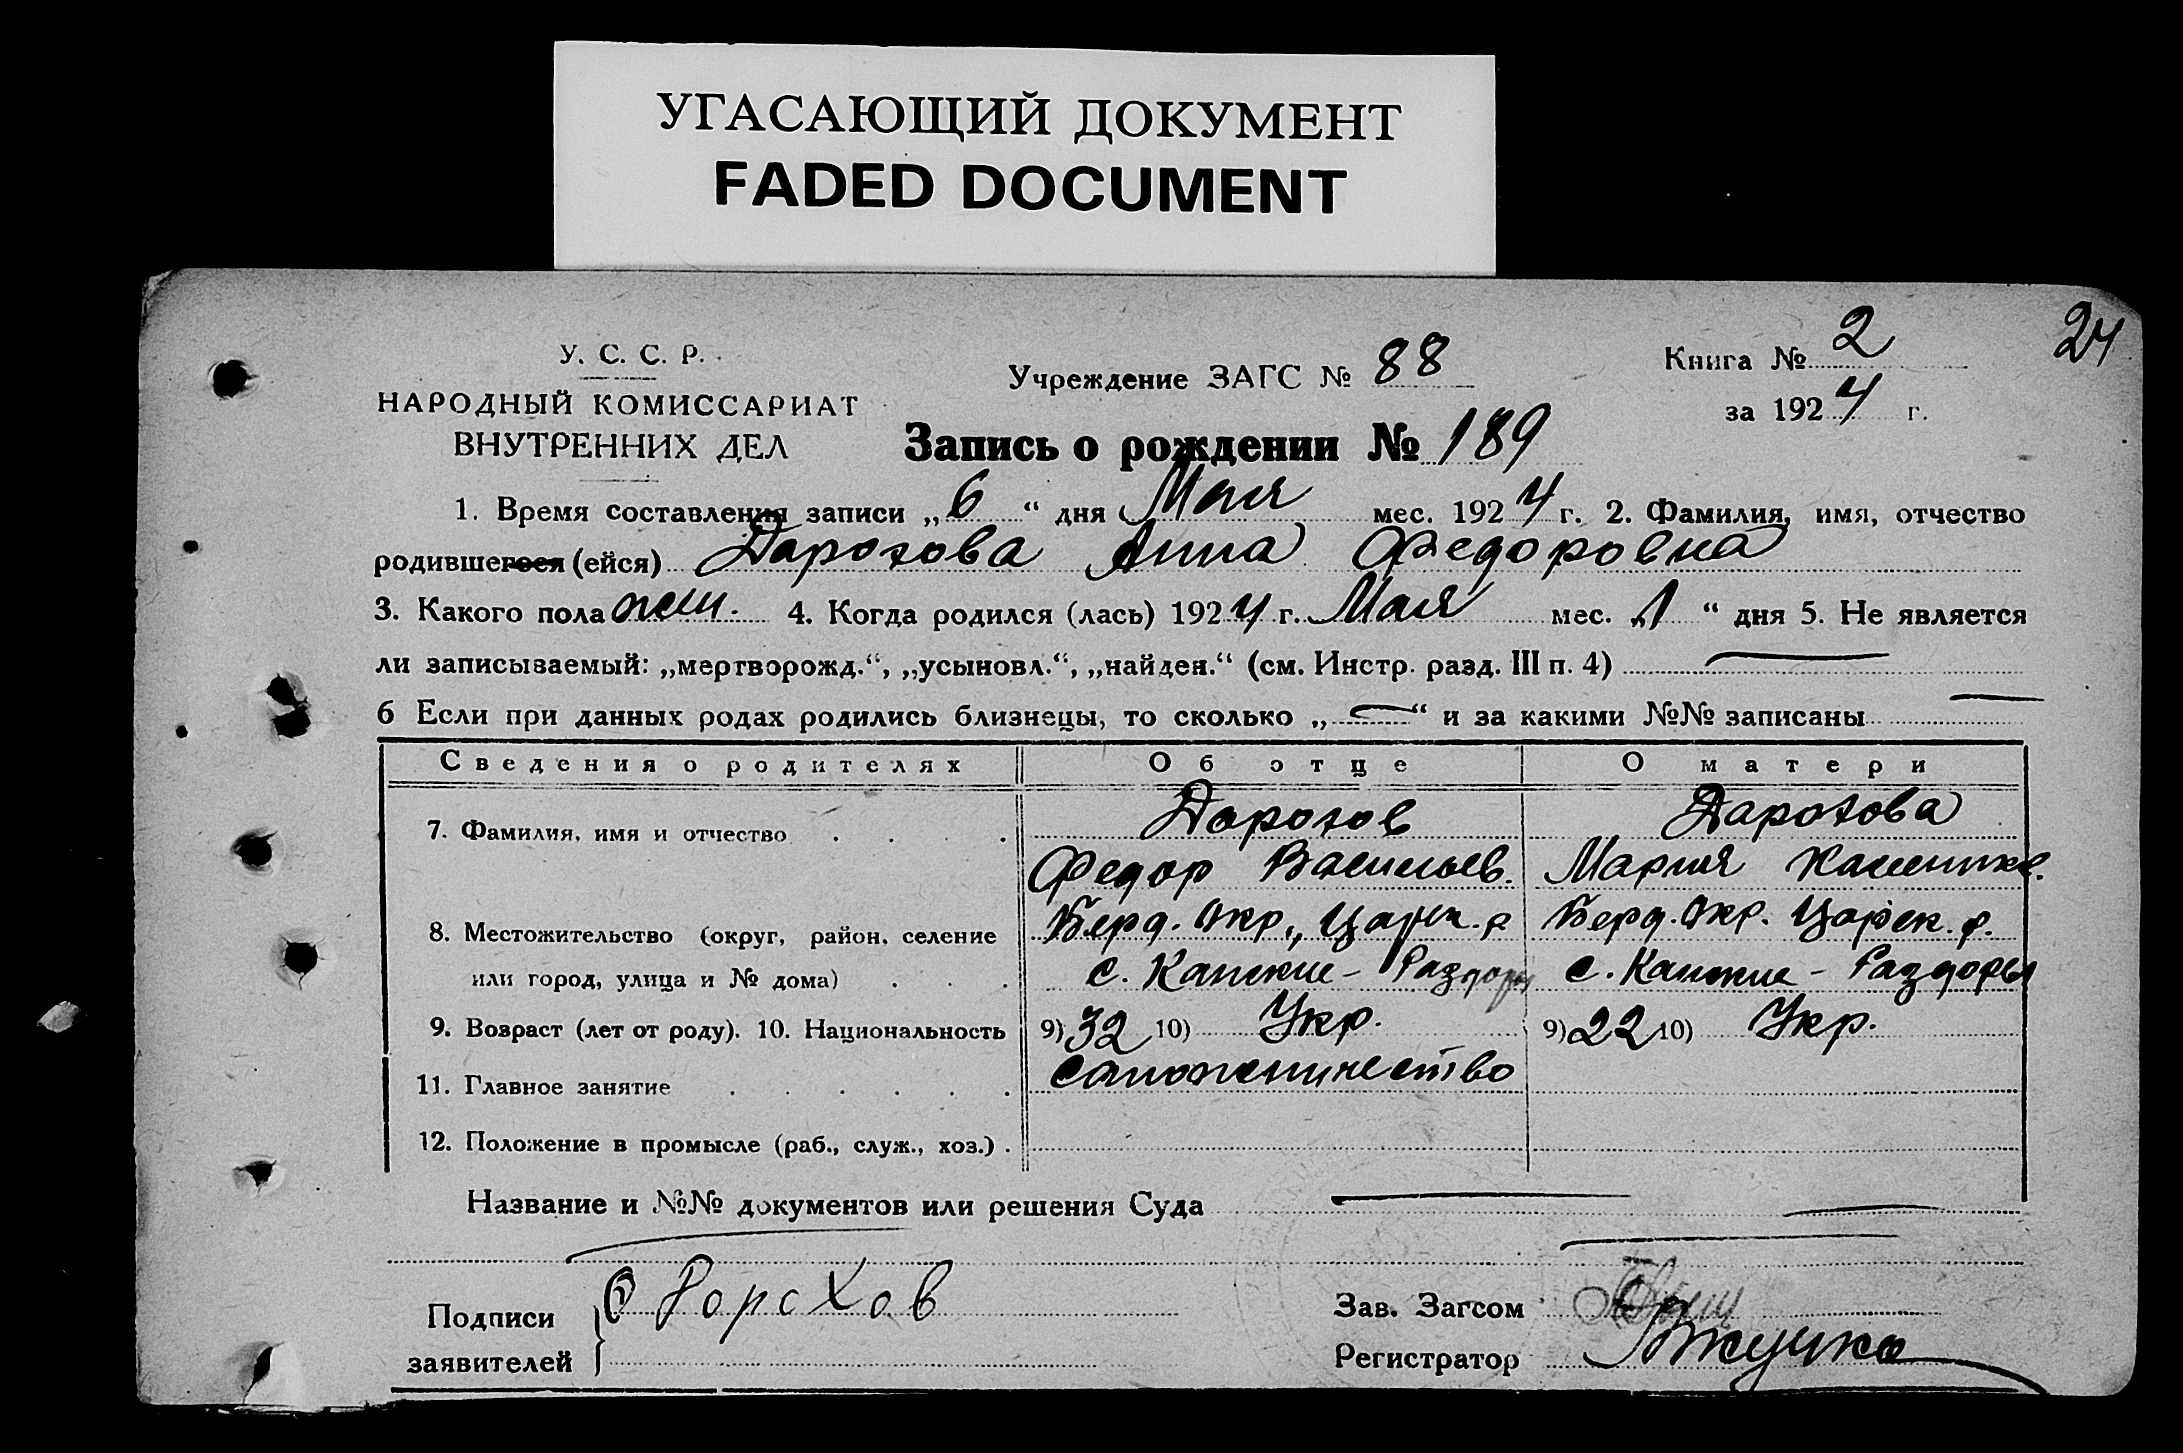 УГАСАЮЩИЙ ДОКУМЕНТ
FADED DOCUMENT
24
У. С. С. Р.
НАРОДНЫЙ КОМИССАРИАТ
ВНУТРЕННИХ ДЕЛ
Учреждение ЗАГС № 88
Книга № 2
за 1924 г.
Запись о рождении № 189
1. Время составления записи „6“ дня Мая мес. 1924 г. 2. Фамилия, имя, отчество
родившегося (ейся) Дарохова Анна Федоровна
3. Какого пола жен. 4. Когда родился (лась) 1924 г. Мая мес. „1“ дня 5. Не является
ли записываемый: „мертворожд.“, „усыновл.“, „найден.“ (см. Инстр. разд. III п. 4)
6 Если при данных родах родились близнецы, то сколько „—“ и за какими №№ записаны —
Сведения о родителях Об отце О матери
7. Фамилия, имя и отчество Дорохов Дарохова
Федор Васильев. Мария
8. Местожительство (округ, район, селение Берд. Окр., Царек. р Берд. Окр. Царек. р.
или город, улица и № дома) с. Канские - Раздоры с. Канские - Раздоры
9. Возраст (лет от роду). 10. Национальность 9) 32 10) Укр. 9) 22 10) Укр.
11. Главное занятие сапожничество
12. Положение в промысле (раб., служ., хоз.)
Название и №№ документов или решения Суда
Подписи
заявителей
Зав. Загсом
Регистратор